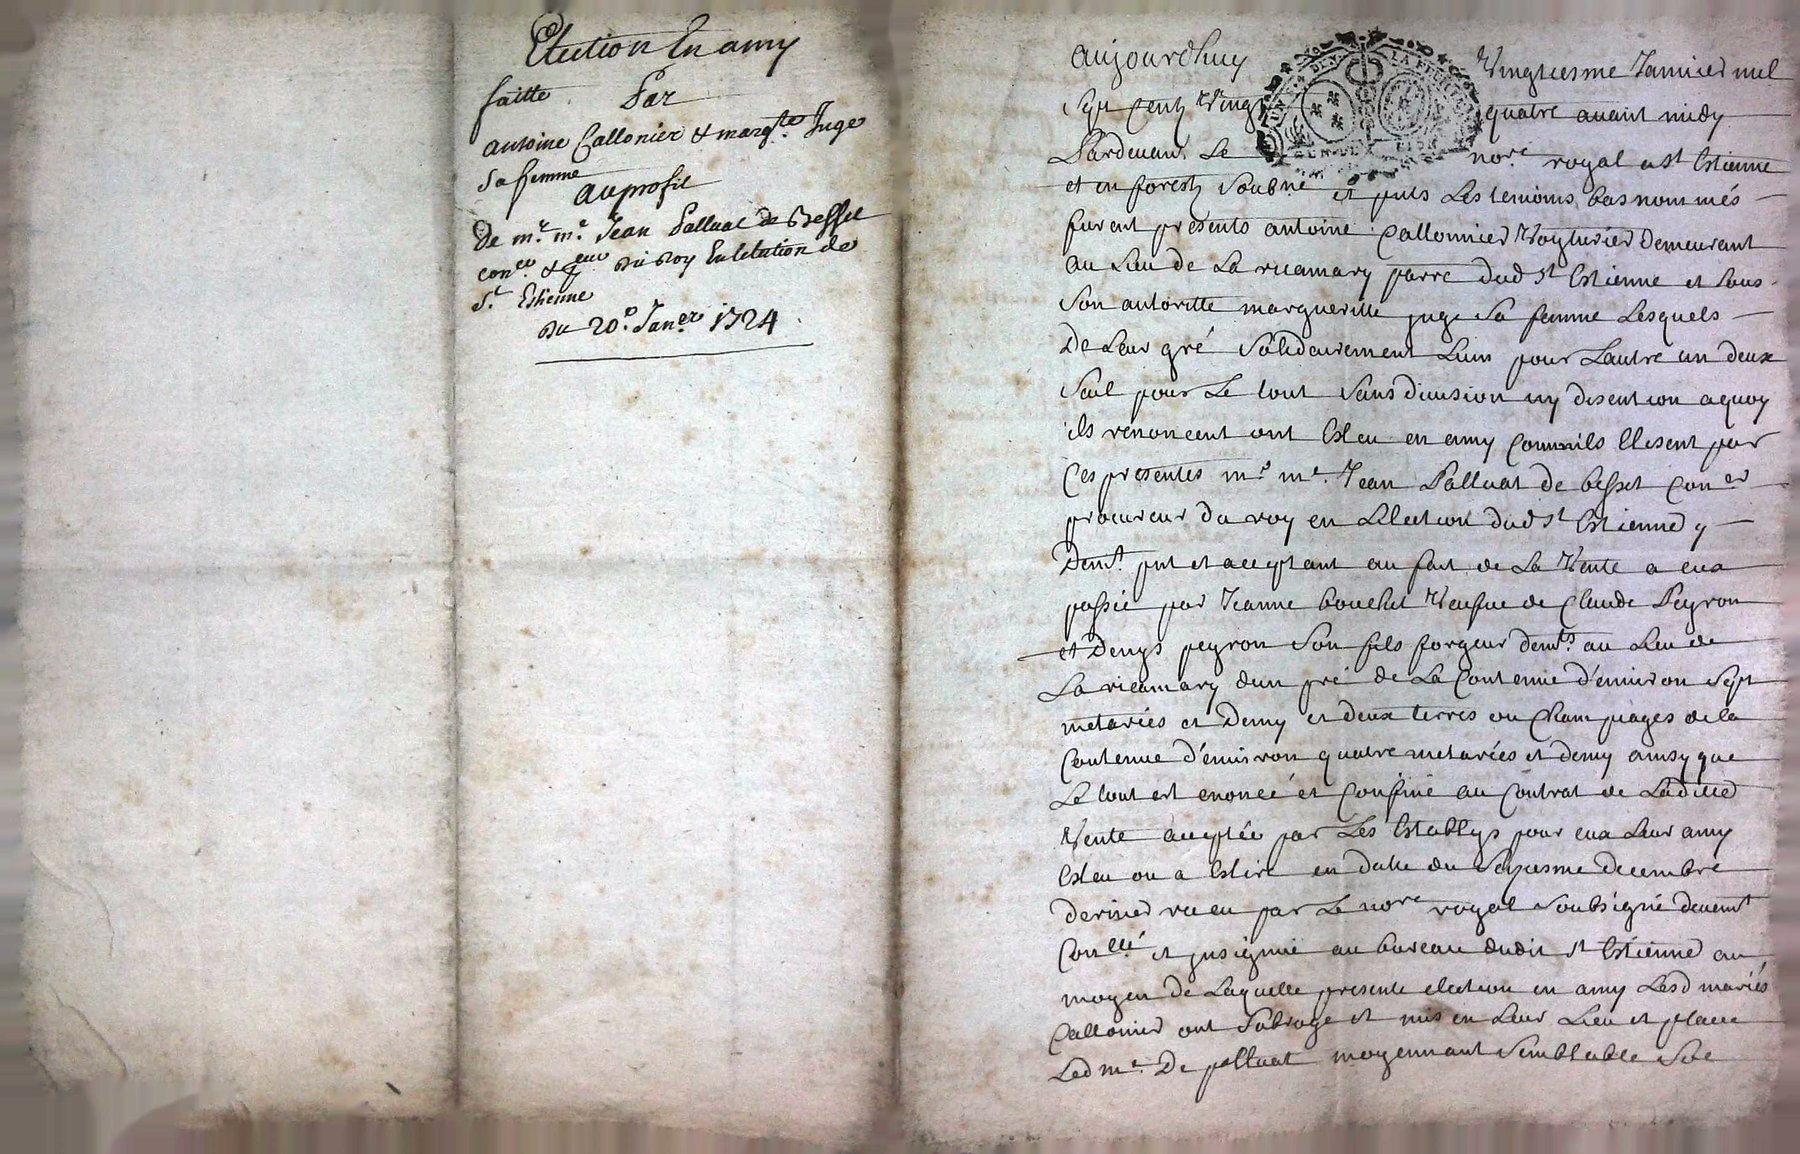 Election En amy
faitte Par
antoine Callonier & marg.te Juge
sa femme
au profit
De m.r m.e Jean Palluat de Besset
con.er & p.eur Du Roy En Lelection de
S.t Estienne
Du 20.e Jan.er 1724
aujourdhuy Vingtiesme Janvier mil
Sept Cents Vingt quatre avant midy
Pardevant Le no.re royal a st Estienne
et en forestz Soubne et puis Les temoins bas nommés
furent presents antoine Callonnier Voyturier Demeurant
au Lieu de La ricamary parre dud st Estienne et Sous
Son autoritte margueritte juge Sa femme Lesquels
De Leur gré Solidairement Lun pour Lautre un deux
Seul pour Le tout Sans division ny disention aquoy
ils renoncent ont Esleu en amy Comme ils Elisent par
Ces presentes m.e m.e Jean Palluat de besset Con.er
procureur du roy en Lelection dud st Estienne y
Dem.t pnt et acceptant au fait de La Vente a eux
passée par Jeanne bouchet Veufve de Claude Peyron
et Denys peyron Son fils forgeur dem.ts au Lieu de
La ricamary dun pré de La Contenue d'environ Sept
metariés et Demy et deux terres ou Champiages de la
Contenue d'environ quatre metariées et demy ainsy que
Le tout est enoncé et Confiné au Contrat de Laditte
Vente acceptée par Les Establys pour eux Leur amy
Esleu ou a Eslire en datte du Seziesme decembre
dernier receu par Le no.re royal Soubsigné devem.t
Con.llé et insignué au bureau dudit st Estienne au
moyen de Laquelle presente election en amy Lesd mariés
Callonier ont Subrogé et mis en Leur Lieu et place
Led m.r De palluat moyennant Semblable Soe